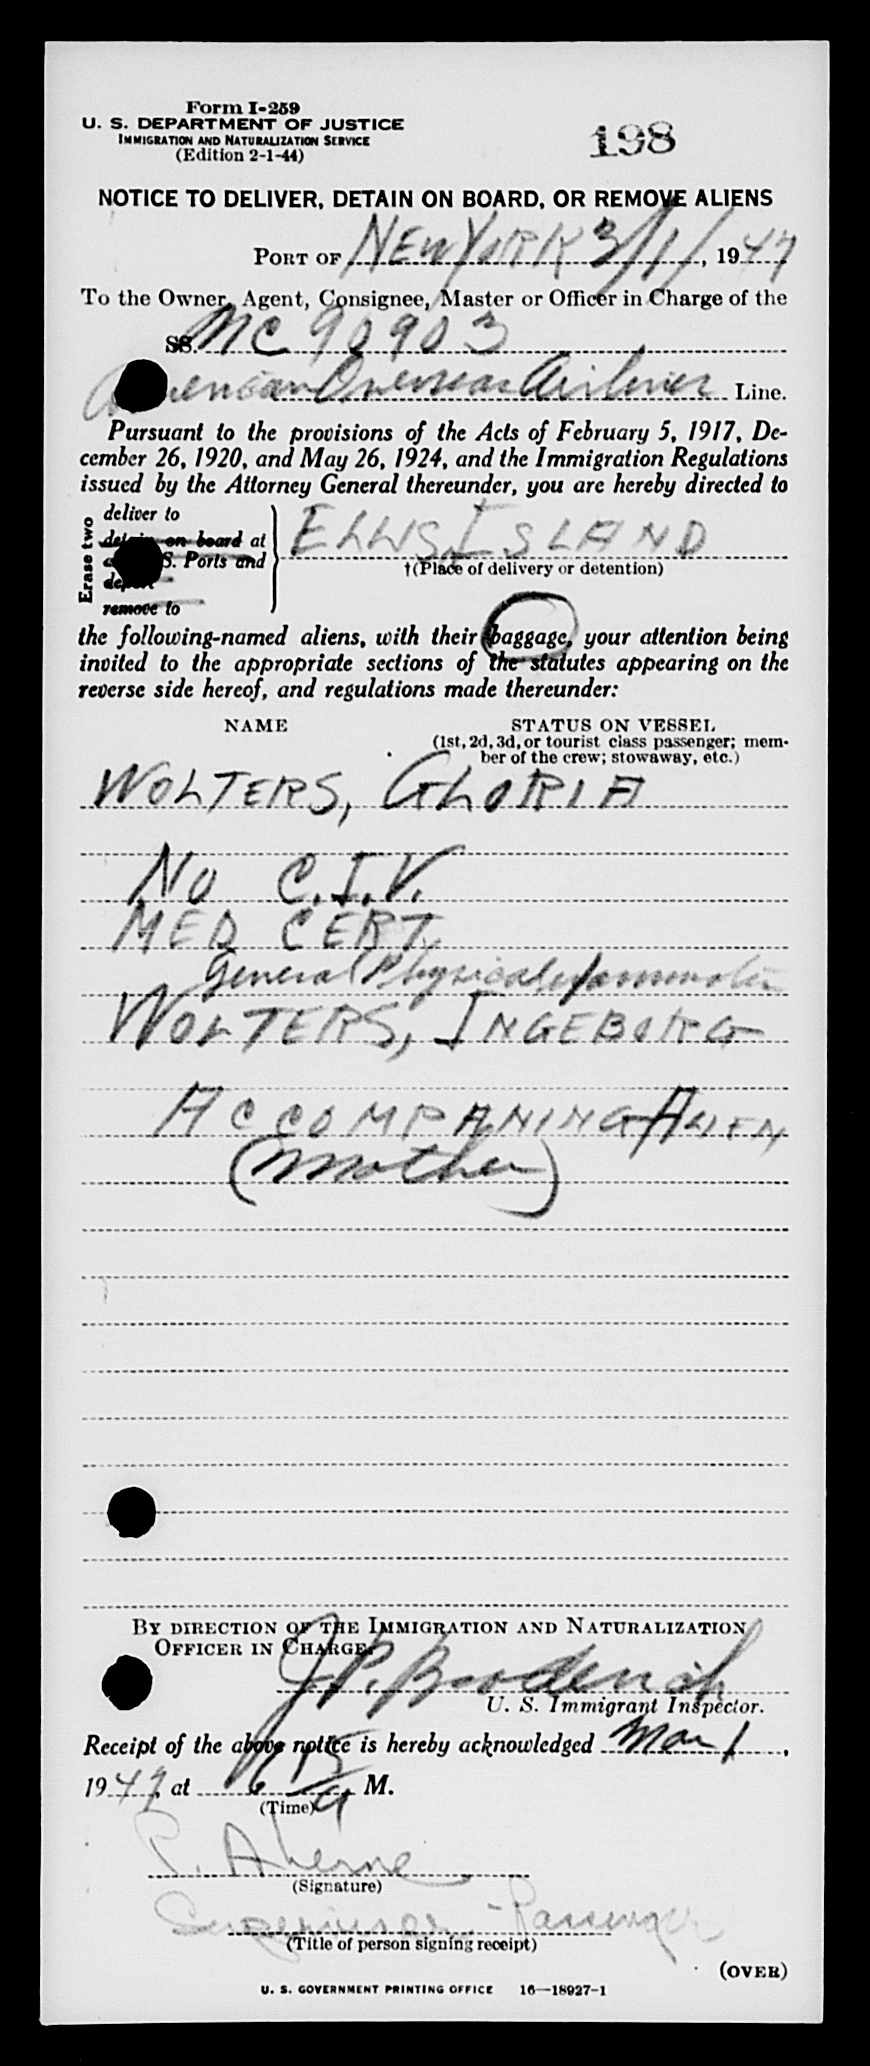 Form I-259
U. S. DEPARTMENT OF JUSTICE
IMMIGRATION AND NATURALIZATION SERVICE
(Edition 2-1-44)
198
NOTICE TO DELIVER, DETAIN ON BOARD, OR REMOVE ALIENS
PORT OF NEW YORK 3/1/, 1947
To the Owner, Agent, Consignee, Master or Officer in Charge of the
SS. NC 90903
American Overseas Airlines Line.
Pursuant to the provisions of the Acts of February 5, 1917, De-
cember 26, 1920, and May 26, 1924, and the Immigration Regulations
issued by the Attorney General thereunder, you are hereby directed to
Erase two
deliver to
detain on board at
S. Ports and
deport
remove to
ELLIS ISLAND
†(Place of delivery or detention)
the following-named aliens, with their baggage, your attention being
invited to the appropriate sections of the statutes appearing on the
reverse side hereof, and regulations made thereunder:
NAME
STATUS ON VESSEL
(1st, 2d, 3d, or tourist class passenger; mem-
ber of the crew; stowaway, etc.)
WOLTERS, GLORIA
NO C.I.V.
MED CERT.
General Physical examination
WOLTERS, INGEBORG
ACCOMPANING ALIEN
(Mother)
BY DIRECTION OF THE IMMIGRATION AND NATURALIZATION
OFFICER IN CHARGE.
J. P. Broderick
U. S. Immigrant Inspector.
Receipt of the above notice is hereby acknowledged Mar 1,
1947, at 6 15 A M.
(Time)
P. Aherne
(Signature)
Supervisor - Passenger
(Title of person signing receipt)
(OVER)
U. S. GOVERNMENT PRINTING OFFICE 16—18927-1